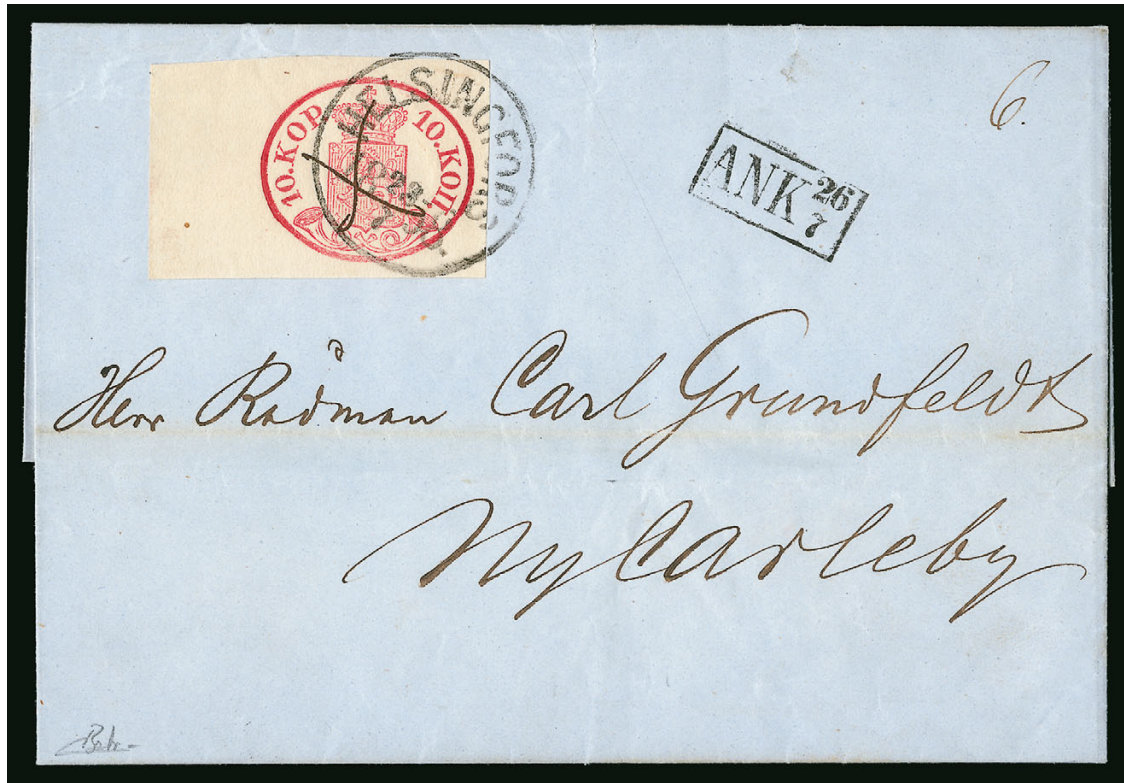 10.KOP. 10.КОП.
HELSINGFORS
6.
ANK 26/7
Herr Rådman Carl Grundfeldt
Nycarleby